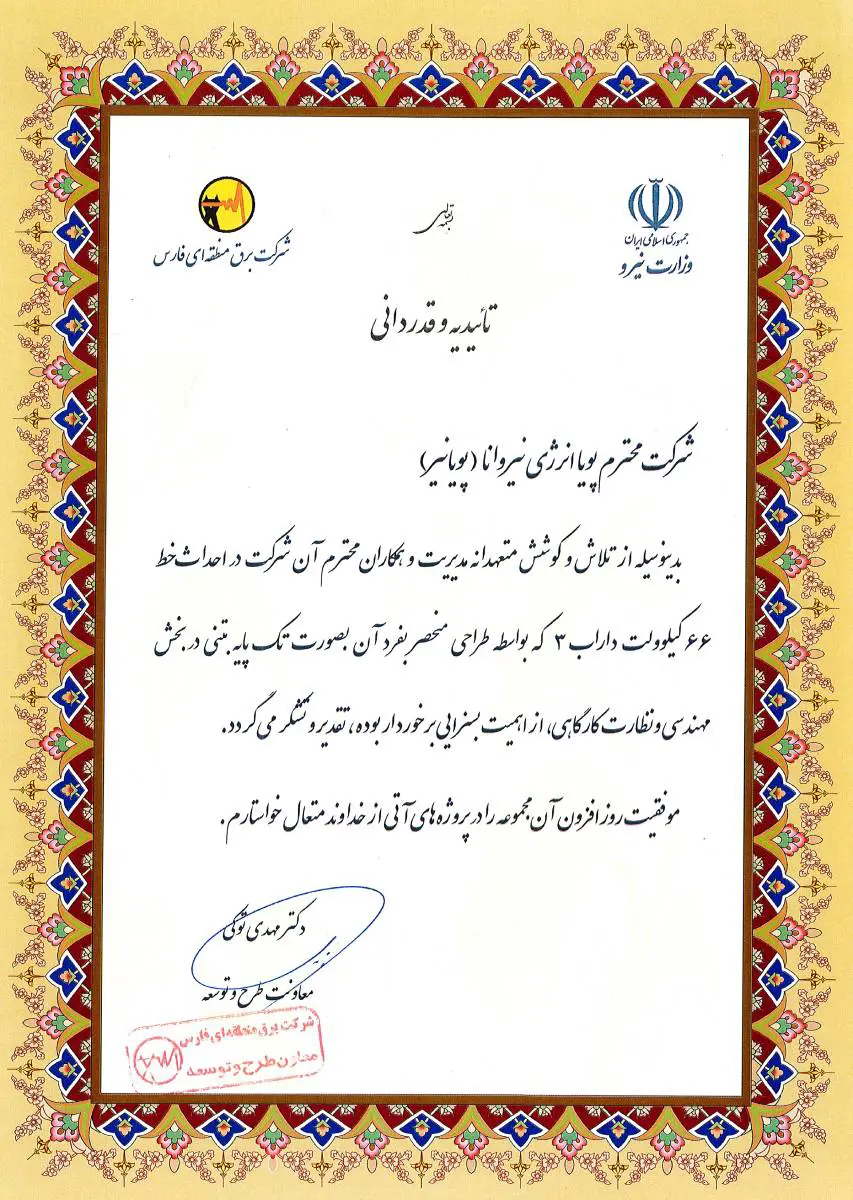 بسمه تعالی
جمهوری اسلامی ایران
وزارت نیرو
شرکت برق منطقه‌ای فارس
تأییدیه و قدردانی
شرکت محترم پویا انرژی نیروانا (پویانیر)
بدینوسیله از تلاش و کوشش متعهدانه مدیریت و همکاران محترم آن شرکت در احداث خط
۶۶ کیلوولت داراب ۳ که بواسطه طراحی منحصر بفرد آن بصورت تک پایه بتنی در بخش
مهندسی و نظارت کارگاهی، از اهمیت بسزایی برخوردار بوده، تقدیر و تشکر می گردد.
موفقیت روز افزون آن مجموعه را در پروژه های آتی از خداوند متعال خواستارم.
دکتر مهدی توکی
معاونت طرح و توسعه
شرکت برق منطقه‌ای فارس
معاون طرح و توسعه